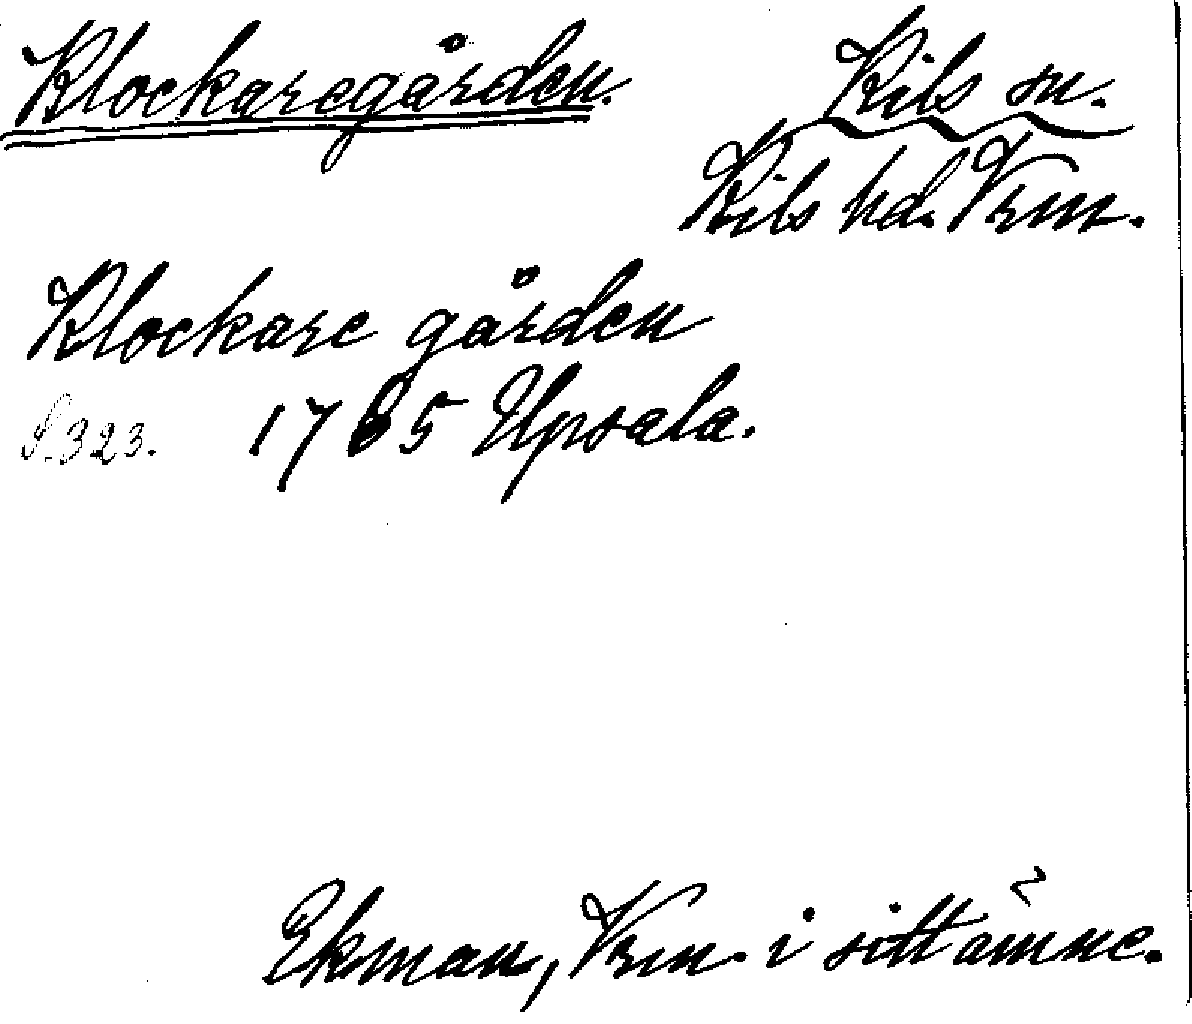 Klockaregården.
Kils sn.
Kils hd. Vrm.
Klockare gården
S. 323. 1765 Upsala.
Ekman, Vrm. i sitt ämne.